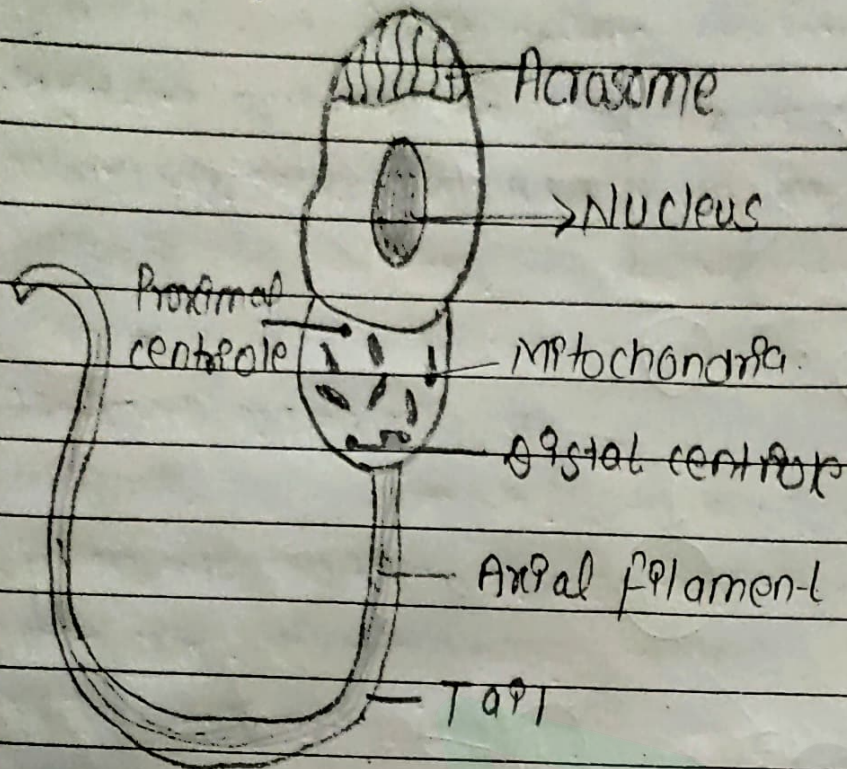 Acrosome
Nucleus
Proximal
centriole
Mitochondria.
Distal
Axial filament
Tail